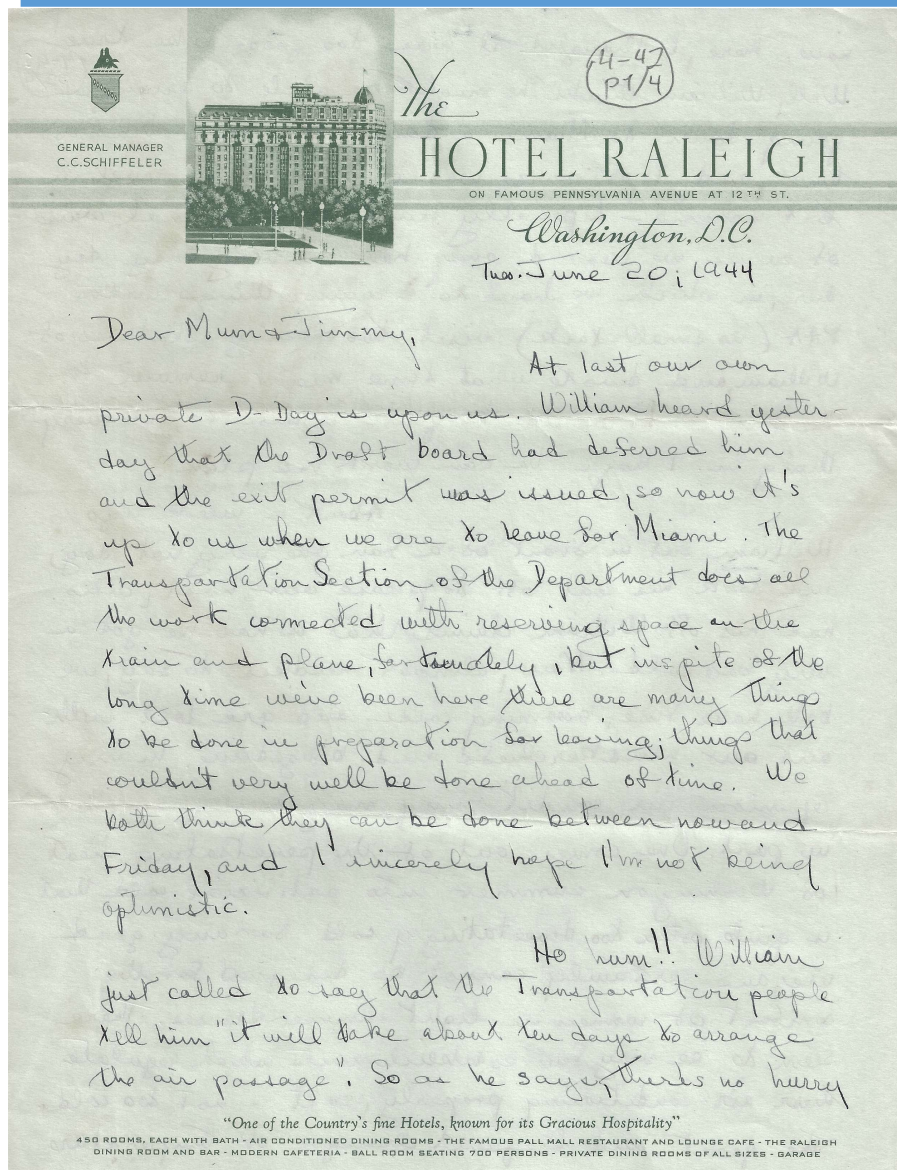 4-47
P1/4
GENERAL MANAGER
C.C.SCHIFFELER
The
HOTEL RALEIGH
ON FAMOUS PENNSYLVANIA AVENUE AT 12TH ST.
Washington, D.C.
Tues. June 20, 1944
Dear Mum & Jimmy,
At last our own
private D-Day is upon us. William heard yester-
day that the Draft board had deferred him
and the exit permit was issued, so now it's
up to us when we are to leave for Miami. The
Transportation Section of the Department does all
the work connected with reserving space on the
train and plane, fortunately, but inspite of the
long time we've been here there are many things
to be done in preparation for leaving; things that
couldn't very well be done ahead of time. We
both think they can be done between now and
Friday, and I sincerely hope I'm not being
optimistic.
Ho hum!! William
just called to say that the Transportation people
tell him "it will take about ten days to arrange
the air passage". So as he says, there's no hurry
"One of the Country's fine Hotels, known for its Gracious Hospitality"
450 ROOMS, EACH WITH BATH - AIR CONDITIONED DINING ROOMS - THE FAMOUS PALL MALL RESTAURANT AND LOUNGE CAFE - THE RALEIGH
DINING ROOM AND BAR - MODERN CAFETERIA - BALL ROOM SEATING 700 PERSONS - PRIVATE DINING ROOMS OF ALL SIZES - GARAGE